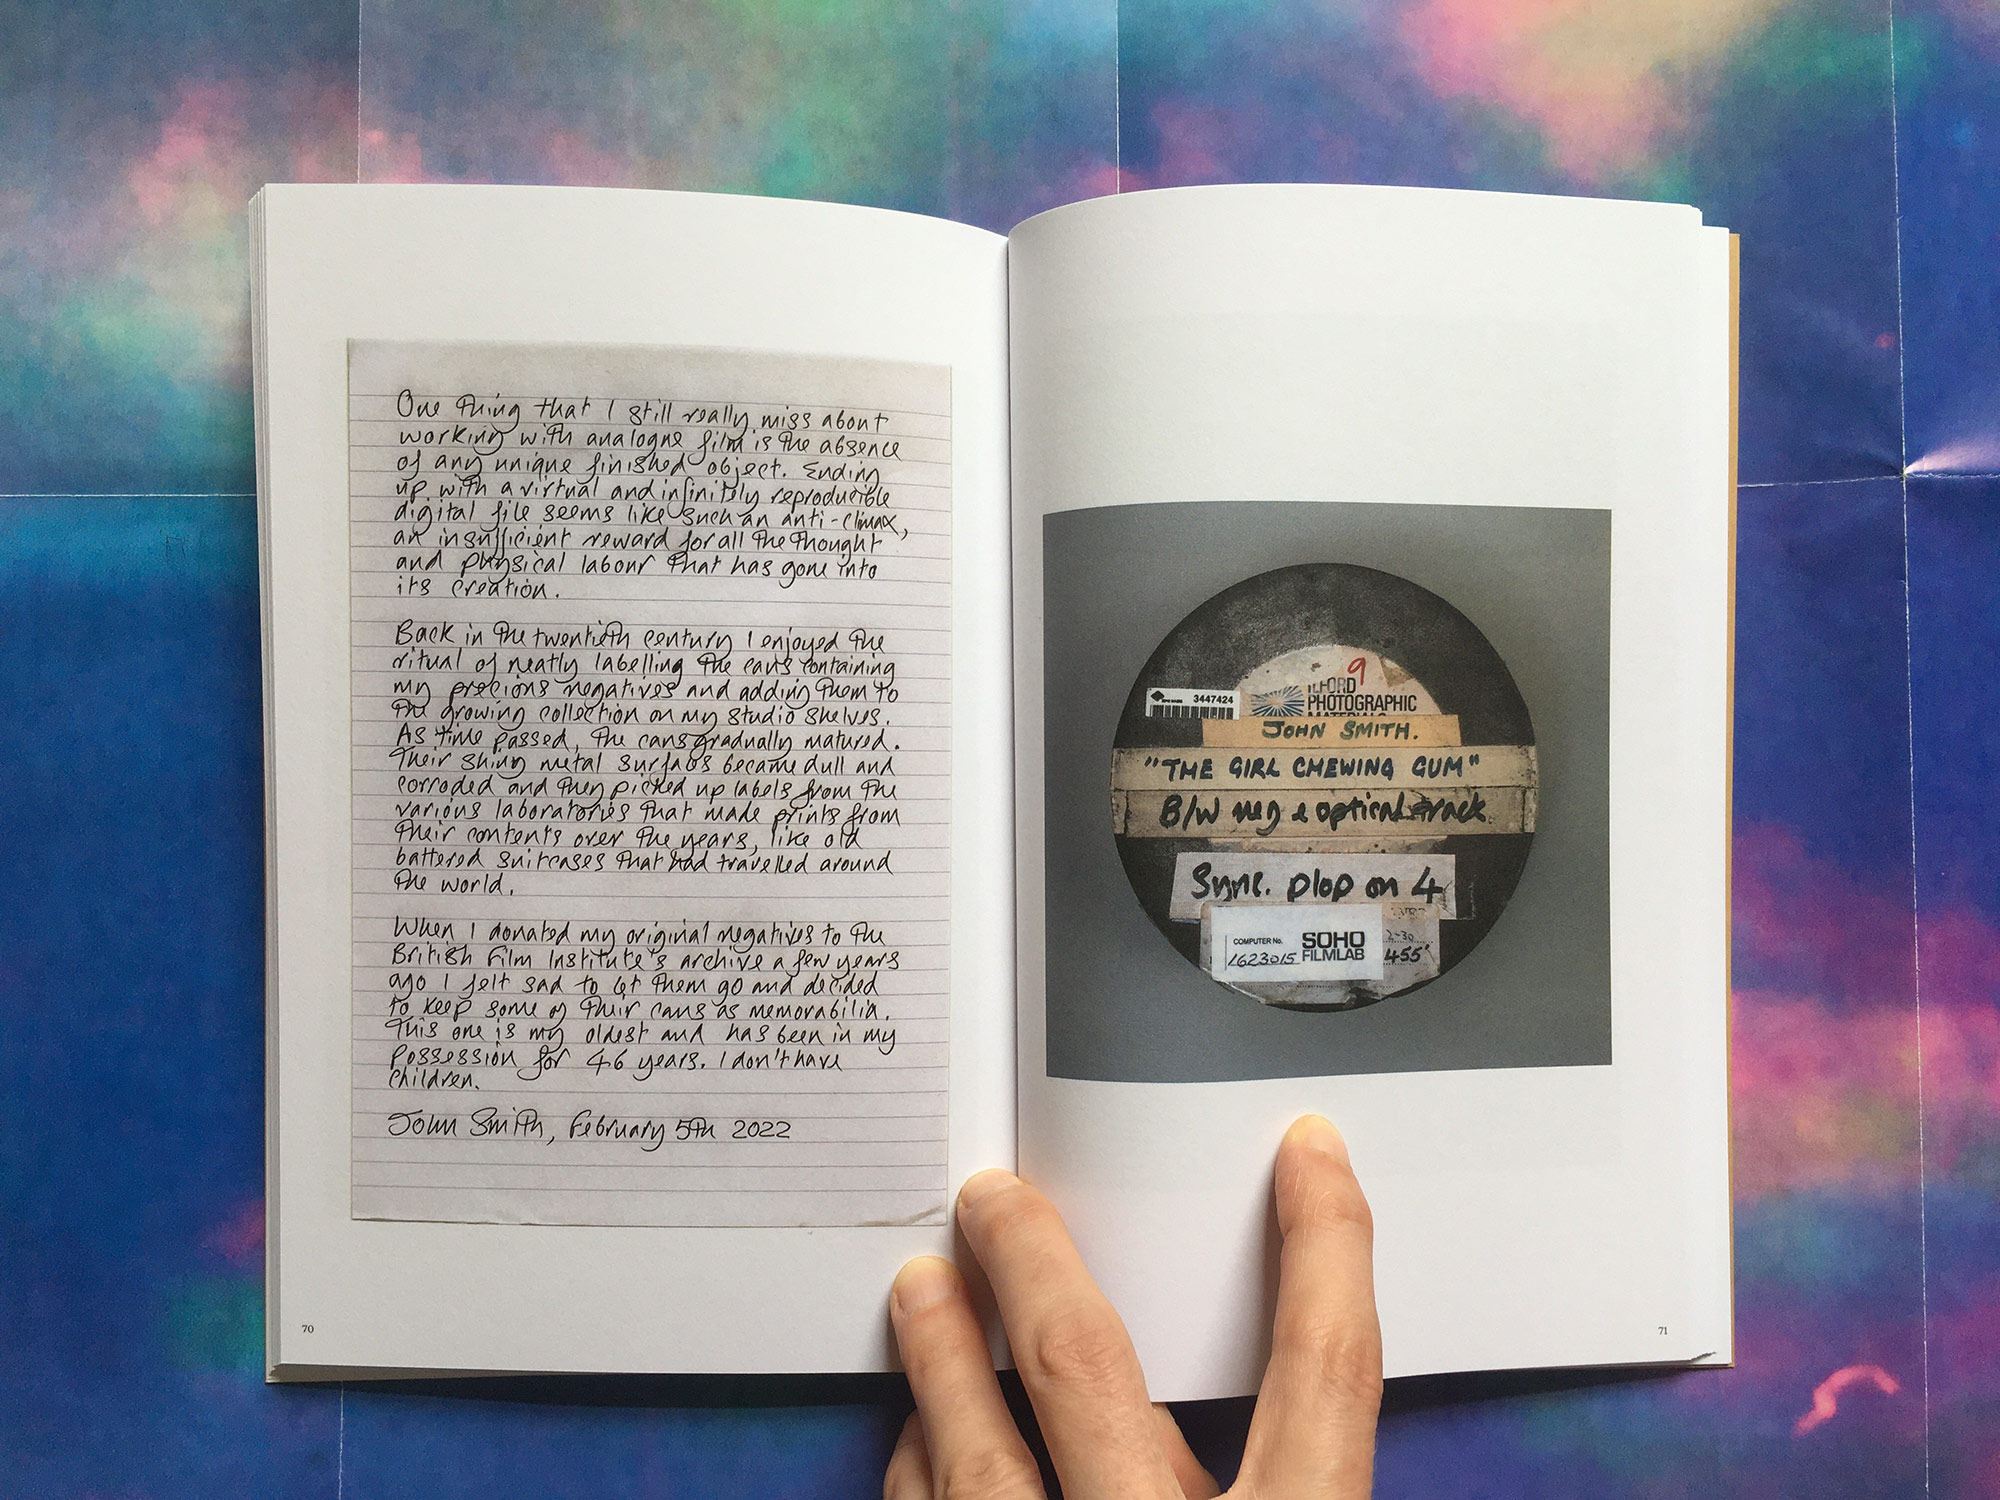 One thing that I still really miss about
working with analogue film is the absence
of any unique finished object. Ending
up with a virtual and infinitely reproducible
digital file seems like such an anti-climax,
an insufficient reward for all the thought
and physical labour that has gone into
its creation.
Back in the twentieth century I enjoyed the
ritual of neatly labelling the cans containing
my precious negatives and adding them to
the growing collection on my studio shelves.
As time passed, the cans gradually matured.
Their shiny metal surfaces became dull and
corroded and they picked up labels from the
various laboratories that made prints from
their contents over the years, like old
battered suitcases that had travelled around
the world.
When I donated my original negatives to the
British Film Institute's archive a few years
ago I felt sad to let them go and decided
to keep some of their cans as memorabilia.
This one is my oldest and has been in my
possession for 46 years. I don't have
children.
John Smith, February 5th 2022
70
9
3447424
ILFORD
PHOTOGRAPHIC
MATERIALS
JOHN SMITH.
"THE GIRL CHEWING GUM"
B/W neg & optical track
Sync. plop on 4
COMPUTER No. SOHO
1623015 FILMLAB
2-30
455'
71